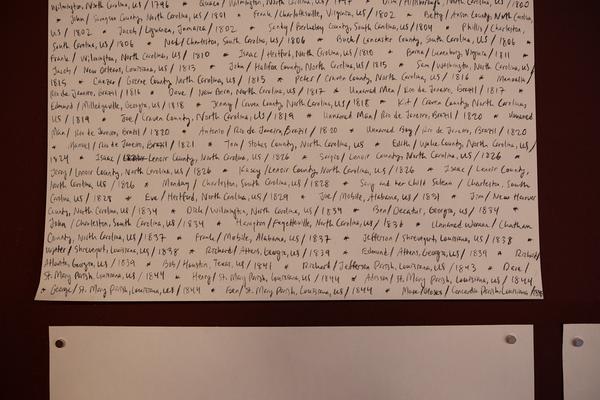 Wilmington, North Carolina, US / 1796 * Quaco / Wilmington, North Carolina, US / * Hillsborough, North Carolina, US / 1800
* John / Simpson County, North Carolina, US / 1801 * Frank / Charlottesville, Virginia, US / 1802 * Betty / Anson County, North Carolina,
US / 1802 * Jacob / Liguanea, Jamaica / 1802 * Sandy / Berkeley County, South Carolina, US / 1804 * Phillis / Charleston,
South Carolina, US / 1806 * Ned / Charleston, South Carolina, US / 1806 * Buck / Lancaster County, South Carolina, US / 1806 *
Frank / Wilmington, North Carolina, US / 1810 * Isaac / Hertford, North Carolina, US / 1810 * / Lunenburg, Virginia / 1811 *
Jacob / New Orleans, Louisiana, US / 1815 * John / Halifax County, North Carolina, US / 1815 * Sam / Washington, North Carolina, US /
1815 * / Greene County, North Carolina, US / 1815 * Peter / Craven County, North Carolina, US / 1816 * Manuela /
Rio de Janeiro, Brazil / 1816 * Dave / New Bern, North Carolina, US / 1817 * Unnamed Man / Rio de Janeiro, Brazil / 1817 *
Edmund / Milledgeville, Georgia, US / 1818 * Jenny / Craven County, North Carolina, US / 1818 * Kit / Craven County, North Carolina,
US / 1819 * Joe / Craven County, North Carolina, US / 1819 * Unnamed Man / Rio de Janeiro, Brazil / 1820 * Unnamed
Man / Rio de Janeiro, Brazil / 1820 * Antonio / Rio de Janeiro, Brazil / 1820 * Unnamed Boy / Rio de Janeiro, Brazil / 1820
* Manuel / Rio de Janeiro, Brazil / 1821 * Tom / Stokes County, North Carolina, US * Edith / Wake County, North Carolina, US /
1824 * Isaac / Lenoir County, North Carolina, US / 1826 * / Lenoir County, North Carolina, US / 1826 *
Jerry / Lenoir County, North Carolina, US / 1826 * Kasey / Lenoir County, North Carolina, US / 1826 * Isaac / Lenoir County,
North Carolina, US / 1826 * Monday / Charleston, South Carolina, US / 1828 * Sary and her Child / Charleston, South
Carolina, US / 1828 * Eve / Hertford, North Carolina, US / 1829 * Joe / Mobile, Alabama, US / 1831 * Jim / New Hanover
County, North Carolina, US / 1834 * Dick / Wilmington, North Carolina, US / 1834 * Ben / Decatur, Georgia, US / 1834 *
John / Charleston, South Carolina, US / 1834 * / Fayetteville, North Carolina, US / 1836 * Unnamed Woman / Chatham
County, North Carolina, US / 1837 * Frank / Mobile, Alabama, US / 1837 * Jefferson / Shreveport, Louisiana, US / 1838 *
/ Shreveport, Louisiana, US / 1838 * Richard / Athens, Georgia, US / 1839 * Edmund / Athens, Georgia, US / 1839 * Richard /
Atlanta, Georgia, US / 1839 * Bob / Houston, Texas, US / 1841 * Richard / Jefferson Parish, Louisiana, US / 1843 * Dave /
St. Mary Parish, Louisiana, US / 1844 * Henry / St. Mary Parish, Louisiana, US / 1844 * / St. Mary Parish, Louisiana, US / 1844
* George / St. Mary Parish, Louisiana, US / 1844 * / St. Mary Parish, Louisiana, US / 1844 * / Concordia Parish, Louisiana /